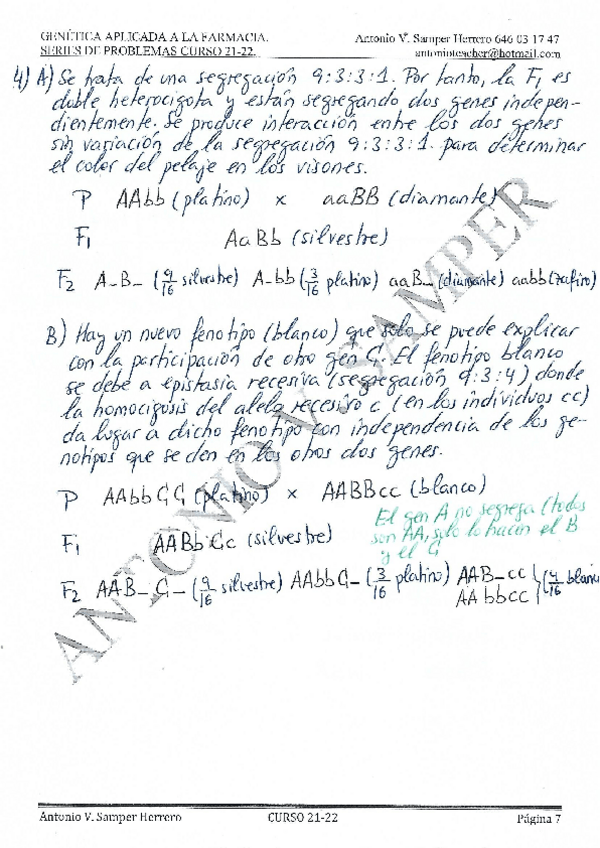 GENÉTICA APLICADA A LA FARMACIA. Antonio V. Samper Herrero 646 03 17 47
SERIES DE PROBLEMAS CURSO 21-22. antonioteacher@hotmail.com
4) A) Se trata de una segregación 9:3:3:1. Por tanto, la F1 es
doble heterocigota y están segregando dos genes indepen-
dientemente. Se produce interacción entre los dos genes
sin variación de la segregación 9:3:3:1. para determinar
el color del pelaje en los visones.
P AAbb (platino) x aaBB (diamante)
F1 AaBb (silvestre)
F2 A-B- (9/16 silvestre) A-bb (3/16 platino) aaB- (diamante) aabb (zafiro)
B) Hay un nuevo fenotipo (blanco) que solo se puede explicar
con la participación de otro gen C. El fenotipo blanco
se debe a epistasia recesiva (segregación 9:3:4), donde
la homocigosis del alelo recesivo c (en los individuos cc)
da lugar a dicho fenotipo con independencia de los ge-
notipos que se den en los otros dos genes.
P AAbbCC (platino) x AABBcc (blanco)
El gen A no segrega (todos
son AA, solo lo hacen el B
y el C
F1 AABbCc (silvestre)
F2 AAB-C- (9/16 silvestre) AAbbC- (3/16 platino) AAB-cc
AAbbcc } (4/16 blan
ANTONIO V. SAMPER
Antonio V. Samper Herrero CURSO 21-22 Página 7